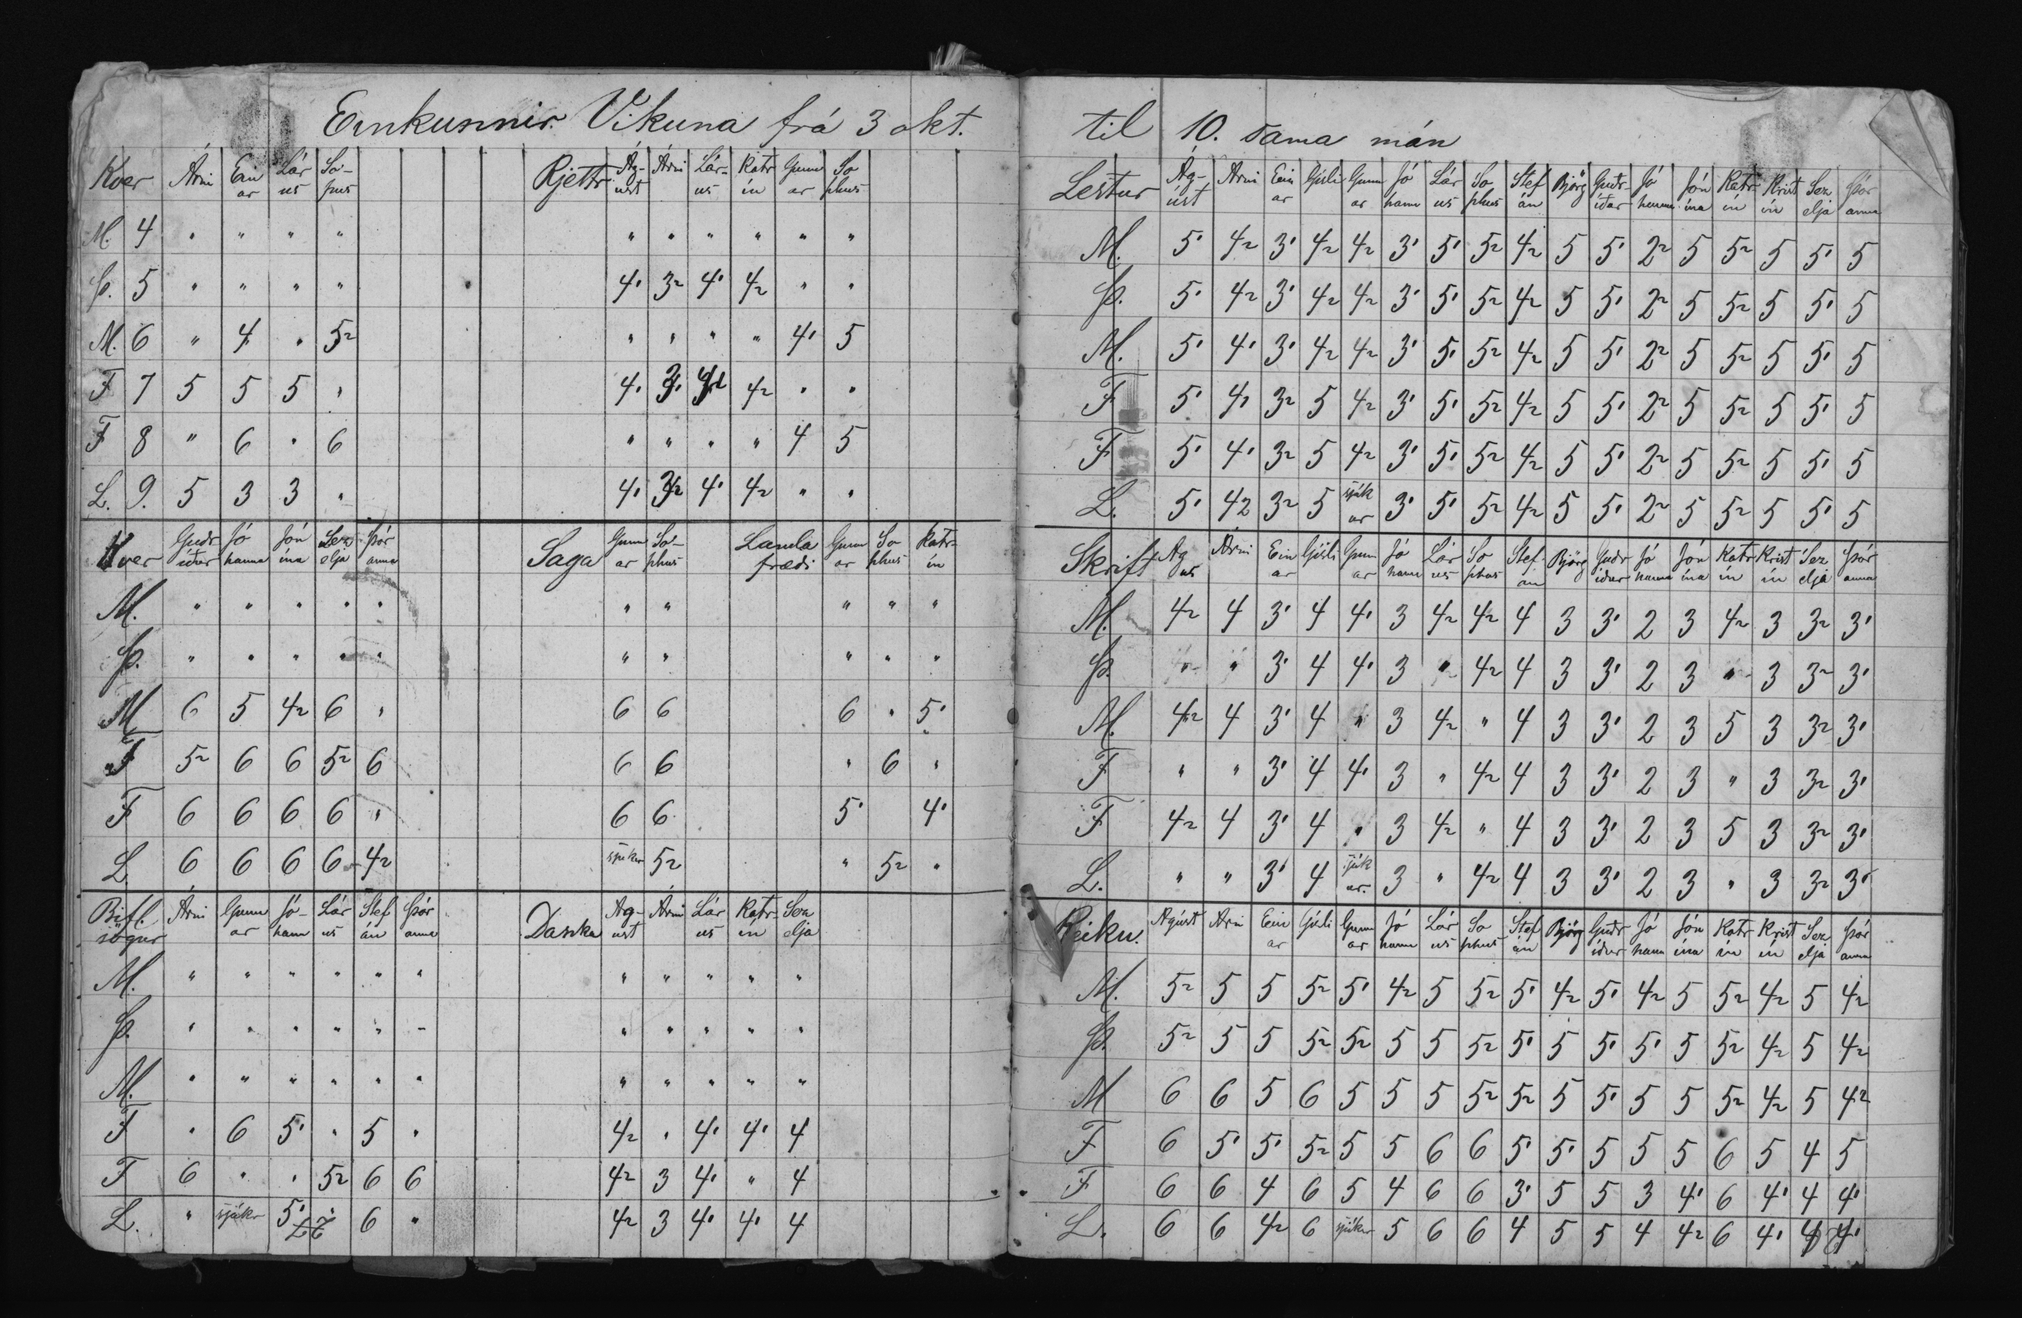 Einkunnir Vikuna frá 3 okt.
Kver Árni Einar Lárus Sophus
M. 4 " " " "
Þ. 5 " " " "
M. 6 " 4 " 52
F 7 5 5 5 "
F 8 " 6 " 6
L. 9. 5 3 3 "
Rjettr. Ágúst Árni Lárus Katrín Gunnar Sophus
" " " " " "
4' 32 4' 42 " "
" " " " 4' 5
4' 3' 42 " "
" " " " 4 5
4' 4' 42 " "
Kver Guðríður Jóhanna Jónína Sezelja Þóranna
M. " " " " "
Þ. " " " " "
M 6 5 42 6 "
F 52 6 6 52 6
F 6 6 6 6 "
L. 6 6 6 6 42
Saga Gunnar Sophus
" "
" "
6 6
6 6
6 6
sjúkur 52
Landafrædi Gunnar Sophus Katrín
" " "
" " "
6 " 5'
" 6 "
5' 4'
" 52 "
Bifl. sögur Árni Gunnar Jóhann Lárus Stefán Þóranna
M. " " " " " "
Þ. " " " " " "
M. " " " " " "
F " 6 5' " 5 "
F 6 " " 52 6 6
L. " sjúkr 5' 6 "
Danska Ágúst Árni Lárus Katrín Sezelja
" " " " "
" " " " "
" " " " "
42 " 4' 4' 4
42 3 4' " 4
42 3 4' 4' 4
til 10. sama mán
Lestur Ágúst Árni Einar Gísli Gunnar Jóhann Lárus Sophus Stefán Björg Guðríður Jóhanna Jónína Katrín Kristín Sezelja Þóranna
M. 5' 42 3' 42 42 3' 5' 52 42 5 5' 22 5 52 5 5' 5
Þ. 5' 42 3' 42 42 3' 5' 52 42 5 5' 22 5 52 5 5' 5
M. 5' 4' 3' 42 42 3' 5' 52 42 5 5' 22 5 52 5 5' 5
F 5' 4' 32 5 42 3' 5' 52 42 5 5' 22 5 52 5 5' 5
F 5' 4' 32 5 42 3' 5' 52 42 5 5' 22 5 52 5 5' 5
L. 5' 42 32 5 sjúkar 3' 5' 52 42 5 5' 22 5 52 5 5' 5
Skrift Ágús Árni Einar Gísli Gunnar Jóhann Lárus Sophus Stefán Björg Guðríður Jóhanna Jónína Katrín Kristín Sezelja Þóranna
M. 42 4 3' 4 4' 3 42 42 4 3 3' 2 3 42 3 32 3'
Þ. " " 3' 4 4' 3 " 42 4 3 3' 2 3 " 3 32 3'
M. 42 4 3' 4 " 3 42 " 4 3 3' 2 3 5 3 32 3'
F " " 3' 4 4' 3 " 42 4 3 3' 2 3 " 3 32 3'
F 42 4 3' 4 " 3 42 " 4 3 3' 2 3 5 3 32 3'
L. " " 3' 4 sjúkar 3 " 42 4 3 3' 2 3 " 3 32 3'
Reikn. Ágúst Árni Einar Gísli Gunnar Jóhann Lárus Sophus Stefán Björg Guðríður Jóhanna Jónína Katrín Kristín Sezelja Þóranna
M. 52 5 5 52 5' 42 5 52 5' 42 5' 42 5 52 42 5 42
Þ. 52 5 5 52 52 5 5 52 5' 5 5' 5' 5 52 42 5 42
M 6 6 5 6 5 5 5 52 52 5 5' 5 5 52 42 5 42
F 6 5' 5' 52 5 5 6 6 5' 5' 5 5 5 6 5 4 5
F 6 6 4 6 5 4 6 6 3' 5 5 3 4' 6 4' 4 4'
L. 6 6 42 6 sjúkur 5 6 6 4 5 5 4 42 6 4' 4 4'